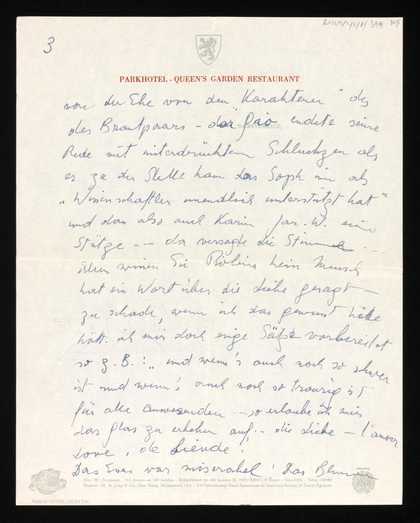 3
PARKHOTEL - QUEEN'S GARDEN RESTAURANT
vor der Ehe von den "Karakteren" des
des Brautpaars - endete seine
Rede mit unterdrücktem Schluchzen als
er zu der Stelle kam das Soph ihn als
"Wissenschaftler unendlich unterstützt hat"
und das also auch Karin eine
Stütze -- da versagte die Stimme
Sie kein Mensch
hat ein Wort über die Liebe gesagt -
zu schade, wenn ich das gewusst hätte
hätt ich mir doch einige Sätze vorbereitet
so z.B.: "und wenn's auch noch so schwer
ist und wenn's auch noch so traurig ist
für alle Anwesenden - so erlaube ich mir
das Glas zu erheben auf .. die Liebe - l'amour
love, de Liefde!
Das Essen war miserabel! Das